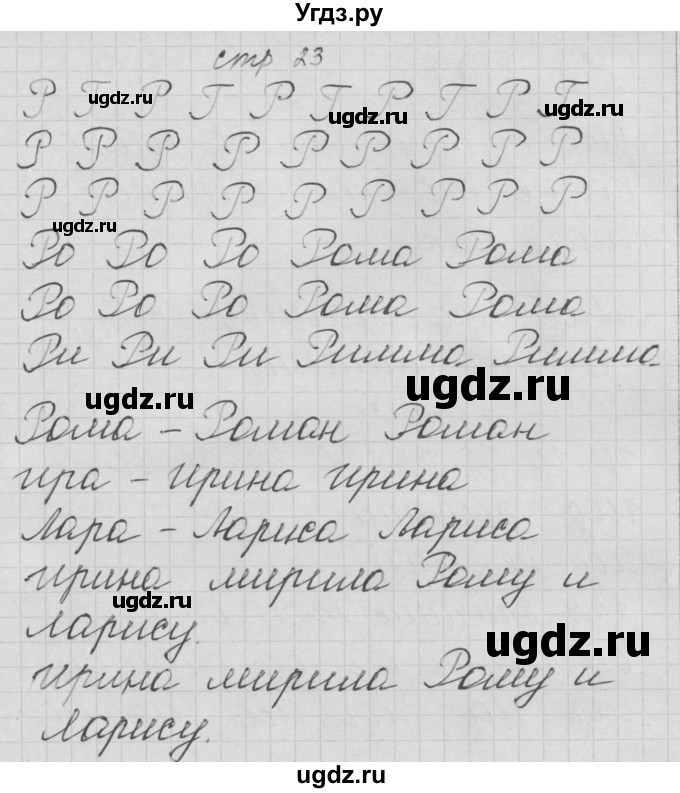 Угдз.ру
стр 23
Р Г Р Г Р Г Р Г Р Г
Р Р Р Р Р Р Р Р Р
Р Р Р Р Р Р Р Р Р
Ро Ро Ро Рома Рома
Ро Ро Ро Рома Рома
Ри Ри Ри Римма Римма
Рома – Роман Роман
Ира – Ирина Ирина
Лара – Лариса Лариса
Ирина мирила Рому и
Ларису.
Ирина мирила Рому и
Ларису.
ugdz.ru
ugdz.ru
ugdz.ru
ugdz.ru
ugdz.ru
ugdz.ru
ugdz.ru
ugdz.ru
ugdz.ru